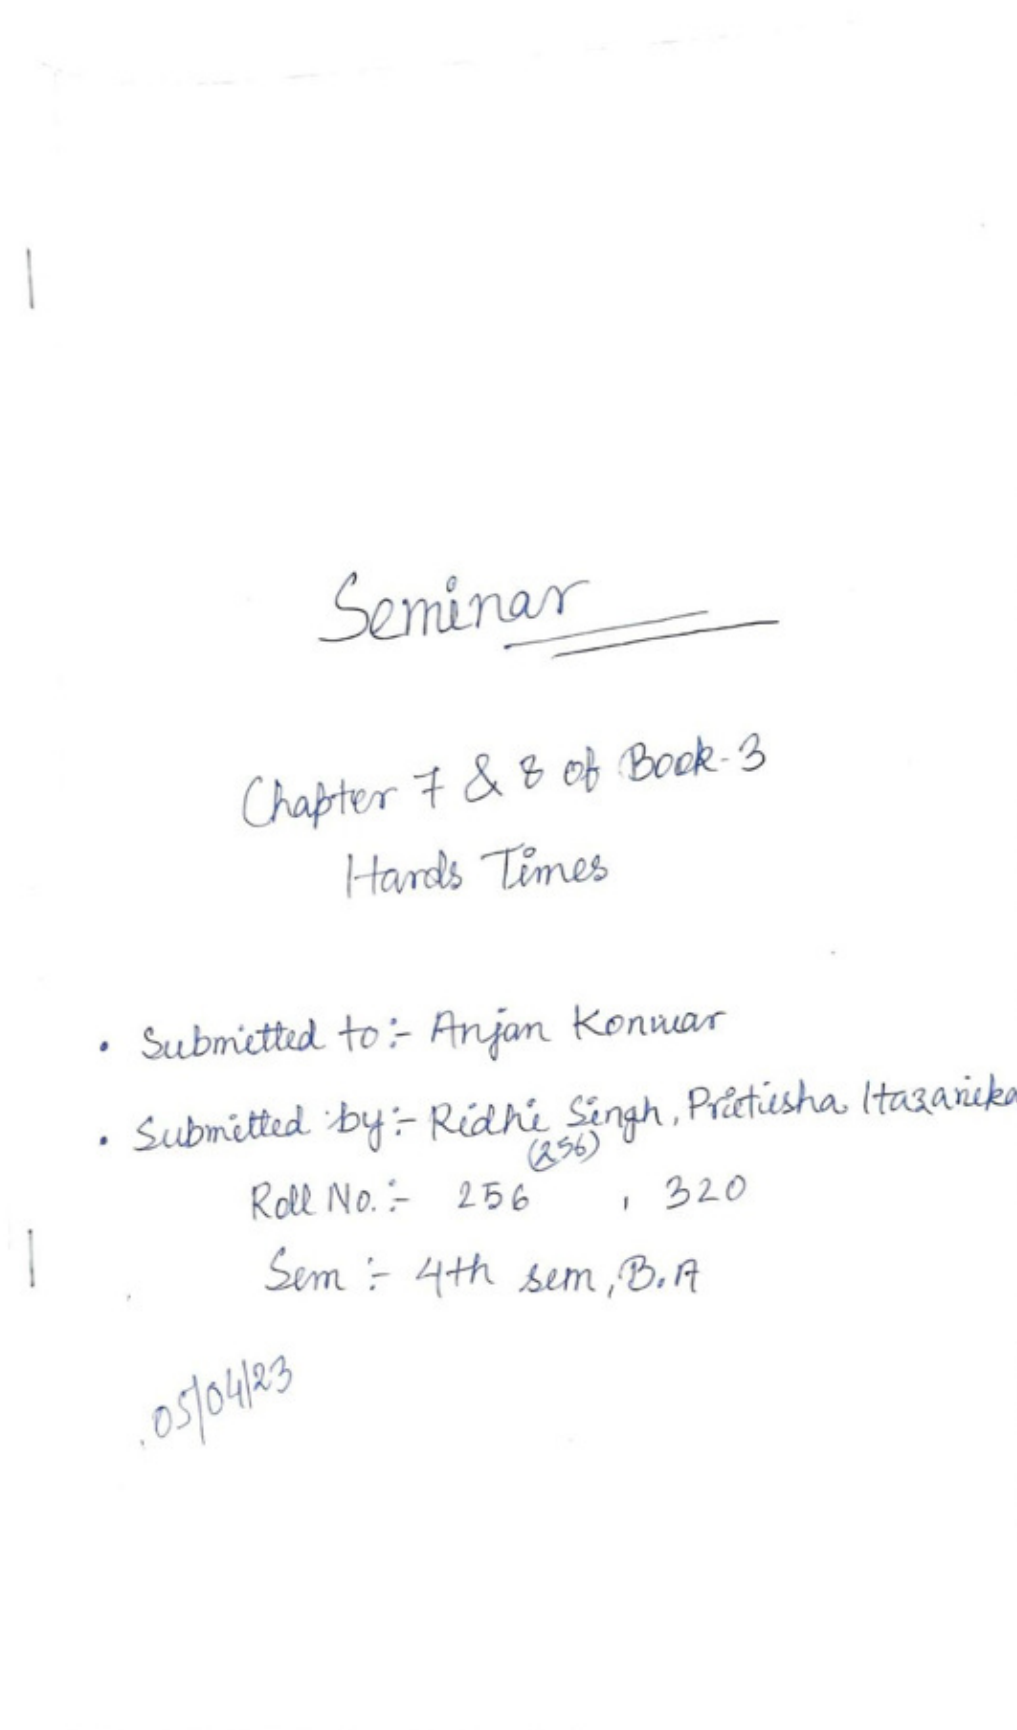 Seminar
Chapter 7 & 8 of Book-3
Hards Times
• Submitted to:- Anjan Konwar
• Submitted by:- Ridhi Singh, Pritiesha Hazarika
(256)
Roll No.:- 256 , 320
Sem :- 4th sem, B.A
05/04/23